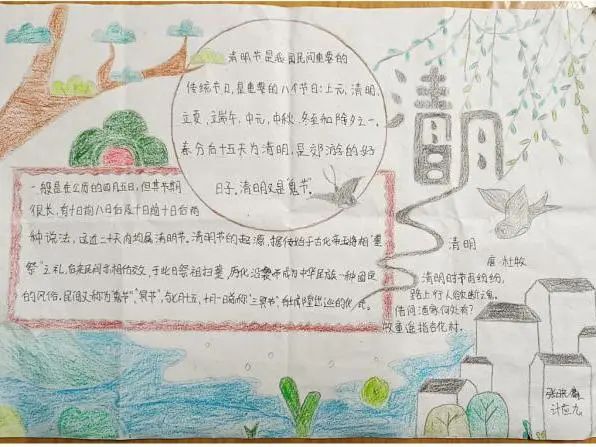 清明节是我国民间重要的
传统节日,是重要的八个节日:上元、清明、
立夏、端午、中元、中秋、冬至和除夕之一。
春分后十五天为清明,是郊游的好
日子,清明又是"鬼节"。
清明
一般是在公历的四月五日,但其节期
很长,有十日前八日后及十日前十日后两
种说法,这近二十天内均属清明节。清明节的起源,据传始于古代帝王将相"墓
祭"之礼,后来民间亦相仿效,于此日祭祖扫墓,历代沿袭而成为中华民族一种固定
的风俗。
清明
唐·杜牧
清明时节雨纷纷,
路上行人欲断魂。
借问酒家何处有?
牧童遥指杏花村。
计应九